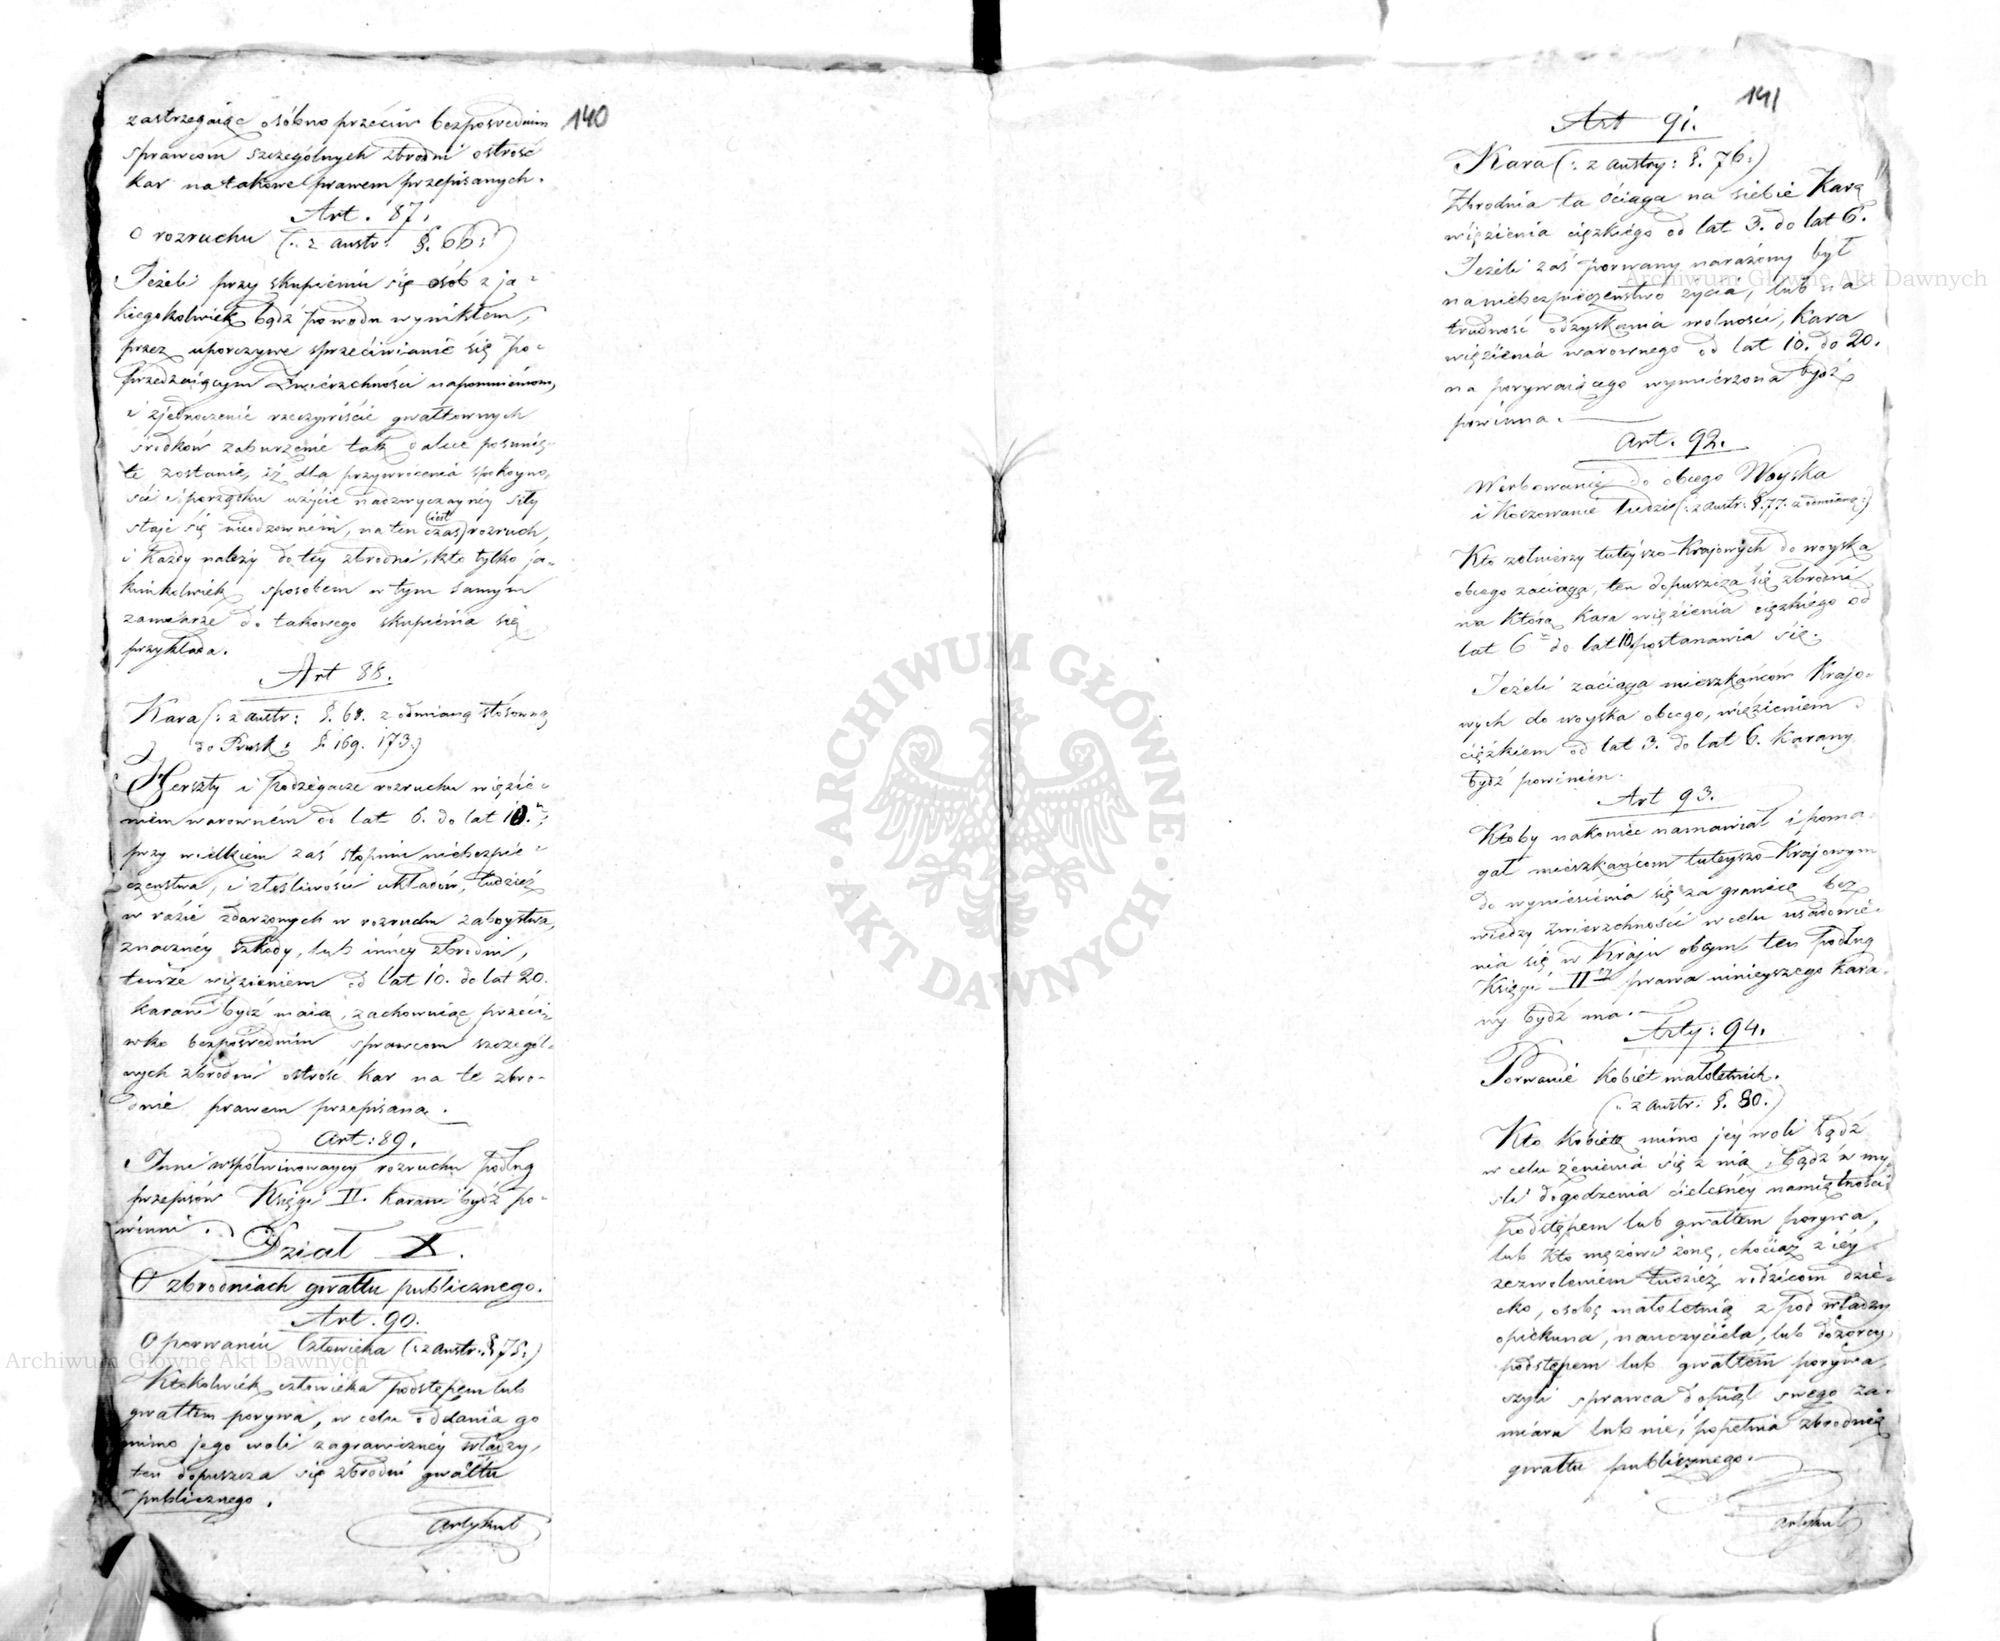 140
zastrzegaiąc osóbno przećiw bezposrednim
sprawcom szczególnych zbrodni ostrość
kar na takowe prawem przepisanych.
Art. 87.
O rozruchu (: z austr: §. 66:)
Jeżeli przy skupieniu się osób z ja-
kiegokolwiek bądź powodu wynikłem,
przez uporczywe sprzećiwianie się po-
przedzaiącym Zwierzchności napomnieniom,
i zjednoczenie rzeczywiśćie gwałtownych
środków zaburzenie tak dalece posunię-
te zostanie, iż dla przywrócenia spokoyno-
ści i porządku użyćie nadzwyczayney siły
staje się niezbędnem, na ten czas iest rozruch,
i każdy należy do tey zbrodni, kto tylko ja-
kimkolwiek sposobem w tym samym
zamiarze do takowego skupienia się
przykłada.
Art 88.
Kara (: z austr: §. 68. z odmianą stósowną
do Prusk: §. 169. 173:)
Herszty i Podzegacze rozruchu więzie-
niem warowném od lat 6. do lat 10.
przy wielkiem zaś stopniu niebezpie-
czeństwa, i złośliwości układów, tudzież
w raźie zdarzonych w rozruchu zaboystwa,
znaczney szkody, lub inney zbrodni,
temże więzieniem od lat 10. do lat 20.
karani bydź maią, zachowniąc przeći-
wko bezpośrednim sprawcom szczegól-
nych zbrodni ostrość kar na te zbro-
dnie prawem przepisaną.
Art: 89.
Inni wspólwinowaycy rozruchu podług
przepisów Księgi II. karani bydź po-
winni.
Dział X.
O zbrodniach gwałtu publicznego.
Art. 90.
O porwaniu Człowieka (: z austr: §. 75:)
Ktokolwiek człowieka podstępem lub
gwałtem porywa, w celu oddania go
mimo jego woli zagraniczney władzy,
ten dopuszcza się zbrodni gwałtu
publicznego.
Artykuł
141
Art 91.
Kara (: z austry: §. 76:)
Zbrodnia ta śćiąga na siebie Karę
więzienia ciężkiego od lat 3. do lat 6.
Jeżeli zaś porwany narażony był
na niebezpieczeństwo życia, lub na
trudność odzyskania wolności, Kara
więzienia warownego od lat 10. do 20.
na porywaiącego wymierzona bydź
powinna.
Art. 92.
Werbowanie do obcego Woyska
i Koczowanie Ludzi (: z austr: §. 77. z odmianą:)
Kto żołnierzy tuteyszo-Krajowych do woyska
obcego zaciąga, ten dopuszcza się zbrodni
na którą Kara więzienia ciężkiego od
lat 6 do lat 10 postanawia się.
Jeżeli zaciąga mieszkańców Krajo-
wych do woyska obcego, więzieniem
ciężkiem od lat 3. do lat 6. Karany
bydź powinien.
Art 93.
Ktoby nakoniec namawiał i poma-
gał mieszkańcom tuteyszo-Krajowym
do wyniesienia się za granicę bez
wiedzy Zwierzchności w celu usadowie-
nia się w Kraju obcym, ten podług
Księgi II prawa ninieyszego kara-
ny bydź ma.
Arty: 94.
Porwanie kobiet małoletnich.
(: z austr: §. 80.)
Kto Kobietę mimo jey woli bądź
w celu żenienia się z nią, bądź w my-
śli dogodzenia cielesney namiętności
podstępem lub gwałtem porywa,
lub Kto mężowi żonę, choćiaż z iey
zezwoleniem tudzież rodzicom dzie-
cko, osobę małoletnią z pod władzy
opiekuna, nauczyciela, lub dozorcy,
podstępem lub gwałtem porywa,
czyli sprawca dopiął swego za-
miaru lub nie, popełnia zbrodnię
gwałtu publicznego.
Artykuł
Archiwum Główne Akt Dawnych
Archiwum Główne Akt Dawnych
ARCHIWUM GŁÓWNE AKT DAWNYCH